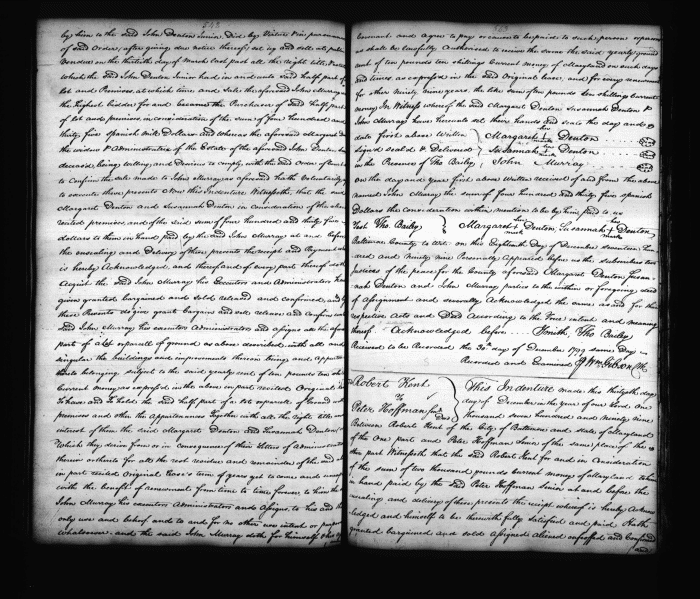 542
by him is the said John Denton Junior Did by Virtue &in pursuance
of said Order, after giving due notice thereof, set up and sell at public
Vendue on the thirtieth day of March last past all the right title &
which the said John Denton Junior had in and unto said half part of
lot and Premises at which time and Sale the aforesaid John Murray
the highest bidder for and became the Purchaser of said half part
of lot and premises in consideration of the sum of four hundred and
thirty five Spanish mill Dollars and Whereas the aforesaid Margaret
the widow & Administratrix of the Estate of the aforesaid John Denton
deceased, being willing and Desirous to comply with the said Order of
to Confirm the Sale made to John Murray as aforesaid hath Voluntarily
to execute these presents Now this Indenture Witnesseth that the said
Margaret Denton and Susannah Denton in Consideration of the above
recited premises, and of the said sum of four hundred and thirty five
dollars to them in hand paid by the said John Murray at and before
the ensealing and Delivery of these presents the receipt and Payment
is hereby Acknowledged, and thereof and of every part thereof doth
Acquit the said John Murray his Executors and Administrators
given granted bargained and sold released and confirmed, and by
these Presents do give grant bargain and sell release and confirm unto
said John Murray his executors Administrators and Assigns all the
part of a Lot or parcell of ground as above described with all and
singular the buildings and improvements thereon being and
thereto belonging subject to the said yearly rent of ten pounds ten
Current money as expressed in the above in part recited Original
To have and To hold the said half part of a lot or parcell of Ground
premises and other the appurtenances Together with all the right title
interest of them the said Margaret Denton and Susannah Denton
Which they derive from or in Consequence of their Letters of Administration
therein or thereto for all the rest residue and remainder of the said
in part recited Original lease's term of years yet to come and
with the benefit of renewment from time to time forever to him the
John Murray his executors Administrators and Assigns, to his and their
only use and behoof and to and for no other use intent or purpose
whatsoever and the said John Murray doth for himself
covenant and agree to pay or cause to be paid to such person or persons
as shall be lawfully Authorised to receive the same the said yearly ground
rent of ten pounds ten shillings Current money of Maryland on such days
and times as expressed in the said Original lease, and for every renewment
for other Ninety Nine years, the like sum of ten pounds ten shillings current
money In Witness whereof the said Margaret Denton Susannah Denton &
John Murray have hereunto set their hands and seals the day and
date first above Written Margaret her mark Denton
Signed sealed & Delivered Susannah her mark Denton
in the Presence of Tho Bailey John Murray
on the day and year first above Written received of and from the above
named John Murray the sum of four hundred and thirty five Spanish
Dollars the Consideration within mention to be by him paid to us
Test Tho. Bailey Margaret her mark Denton, Susannah her mark Denton
Baltimore County to wit. on the Eighteenth Day of December seventeen hun-
dred and ninety nine Personally Appeared before us the subscribers two
justices of the peace for the County aforesaid Margaret Denton Susan-
nah Denton and John Murray parties to the within or foregoing deed
of Assignment and severally Acknowledged the same as and for their
respective Acts and Deed According to the True intent and meaning
thereof Acknowledged before Smith, Tho Bailey
Received to be Recorded the 30th day of December 1799 same Day
Recorded and Examined Wm Gibson Clk
Robert Kent
to
Peter Hoffman Senr
Deed
This Indenture made this thirtieth day
day of December in the year of our Lord One
thousand seven hundred and Ninety Nine
Between Robert Kent of the City of Baltimore and State of Maryland
of the One part and Peter Hoffman Senior of the same place of the o-
ther part Witnesseth that the said Robert Kent for and in Consideration
of the sum of two thousand pounds Current money of Maryland to him
in hand paid by the said Peter Hoffman Senior at and before the
ensealing and delivery of these presents the receipt whereof is hereby Acknow-
ledged and himself to be therewith fully satisfied and paid Hath
granted bargained and sold assigned aliened enfeoffed and Confirmed
and